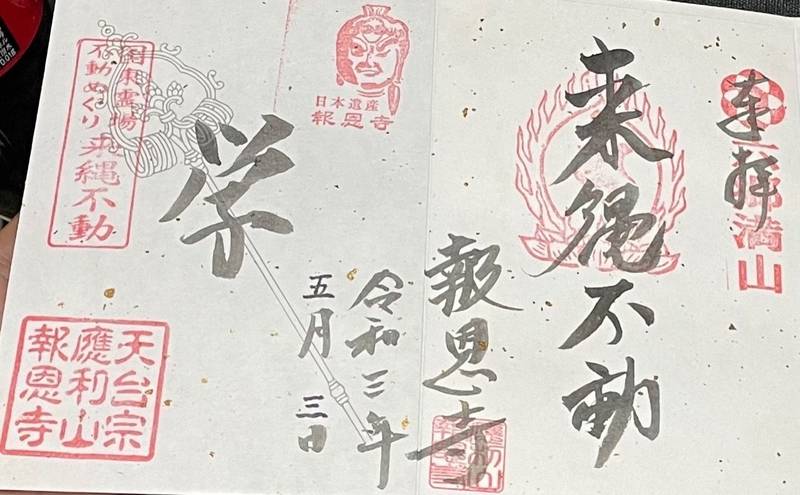 奉拝
六郷満山
来縄不動
報恩寺
令和三年
五月三日
日本遺産
報恩寺
学
国東霊場
不動めぐり
来縄不動
天台宗
應利山
報恩寺